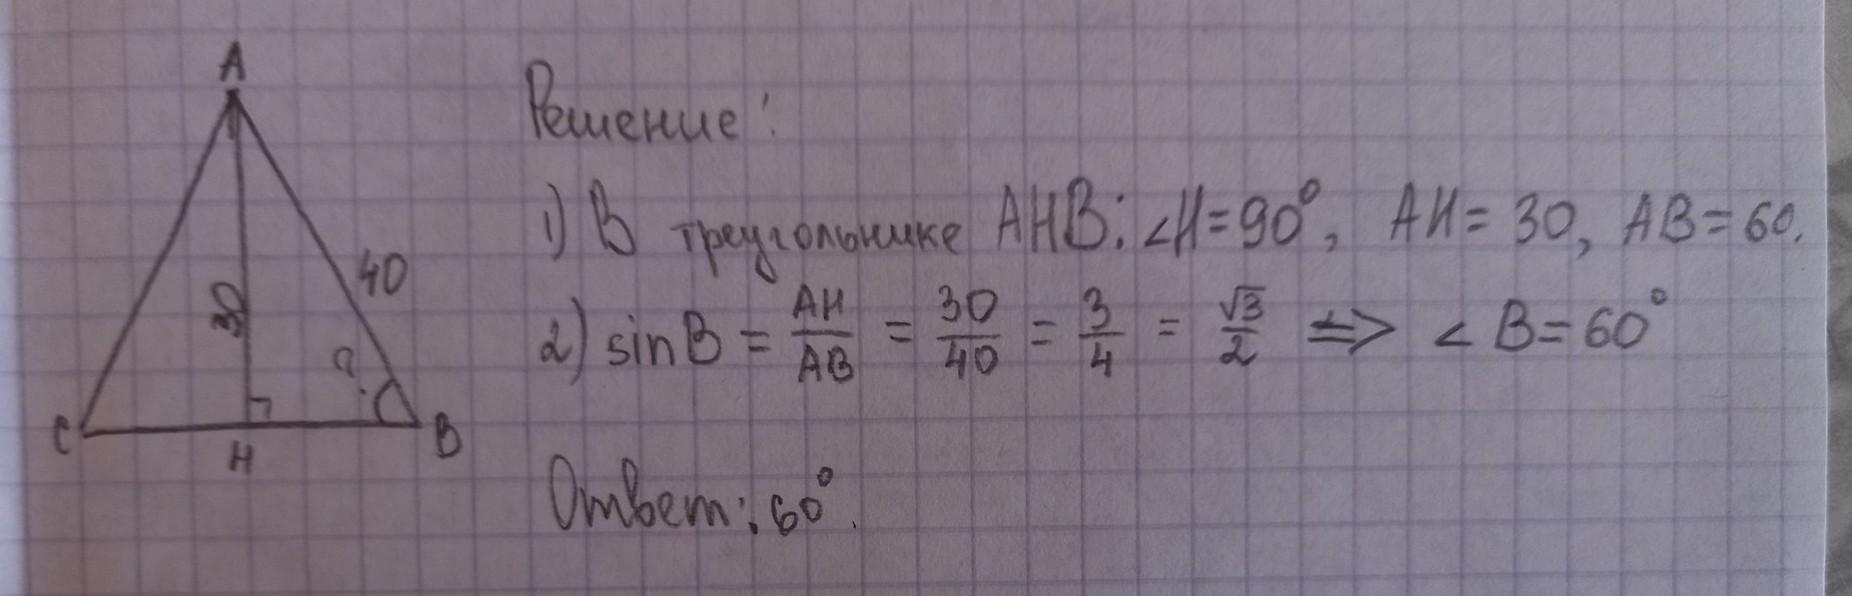 A
Решение:
1) В треугольнике AHB: ∠H=90°, AH=30, AB=60.
40
30
2) sinB = AH/AB = 30/40 = 3/4 = √3/2 => ∠B=60°
?
C
H
B
Ответ: 60°.